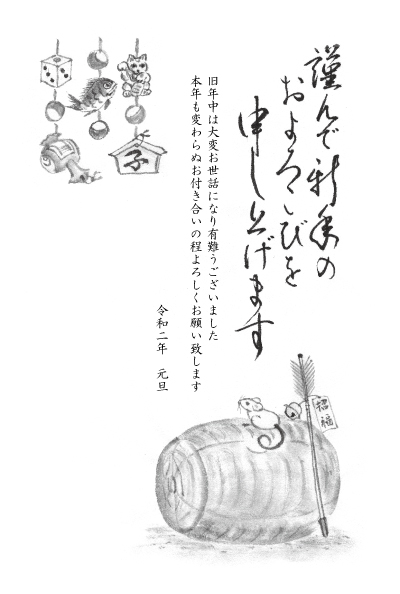 謹んで新年の
およろこびを
申し上げます
旧年中は大変お世話になり有難うございました
本年も変わらぬお付き合いの程よろしくお願い致します
令和二年　元旦
子
招福